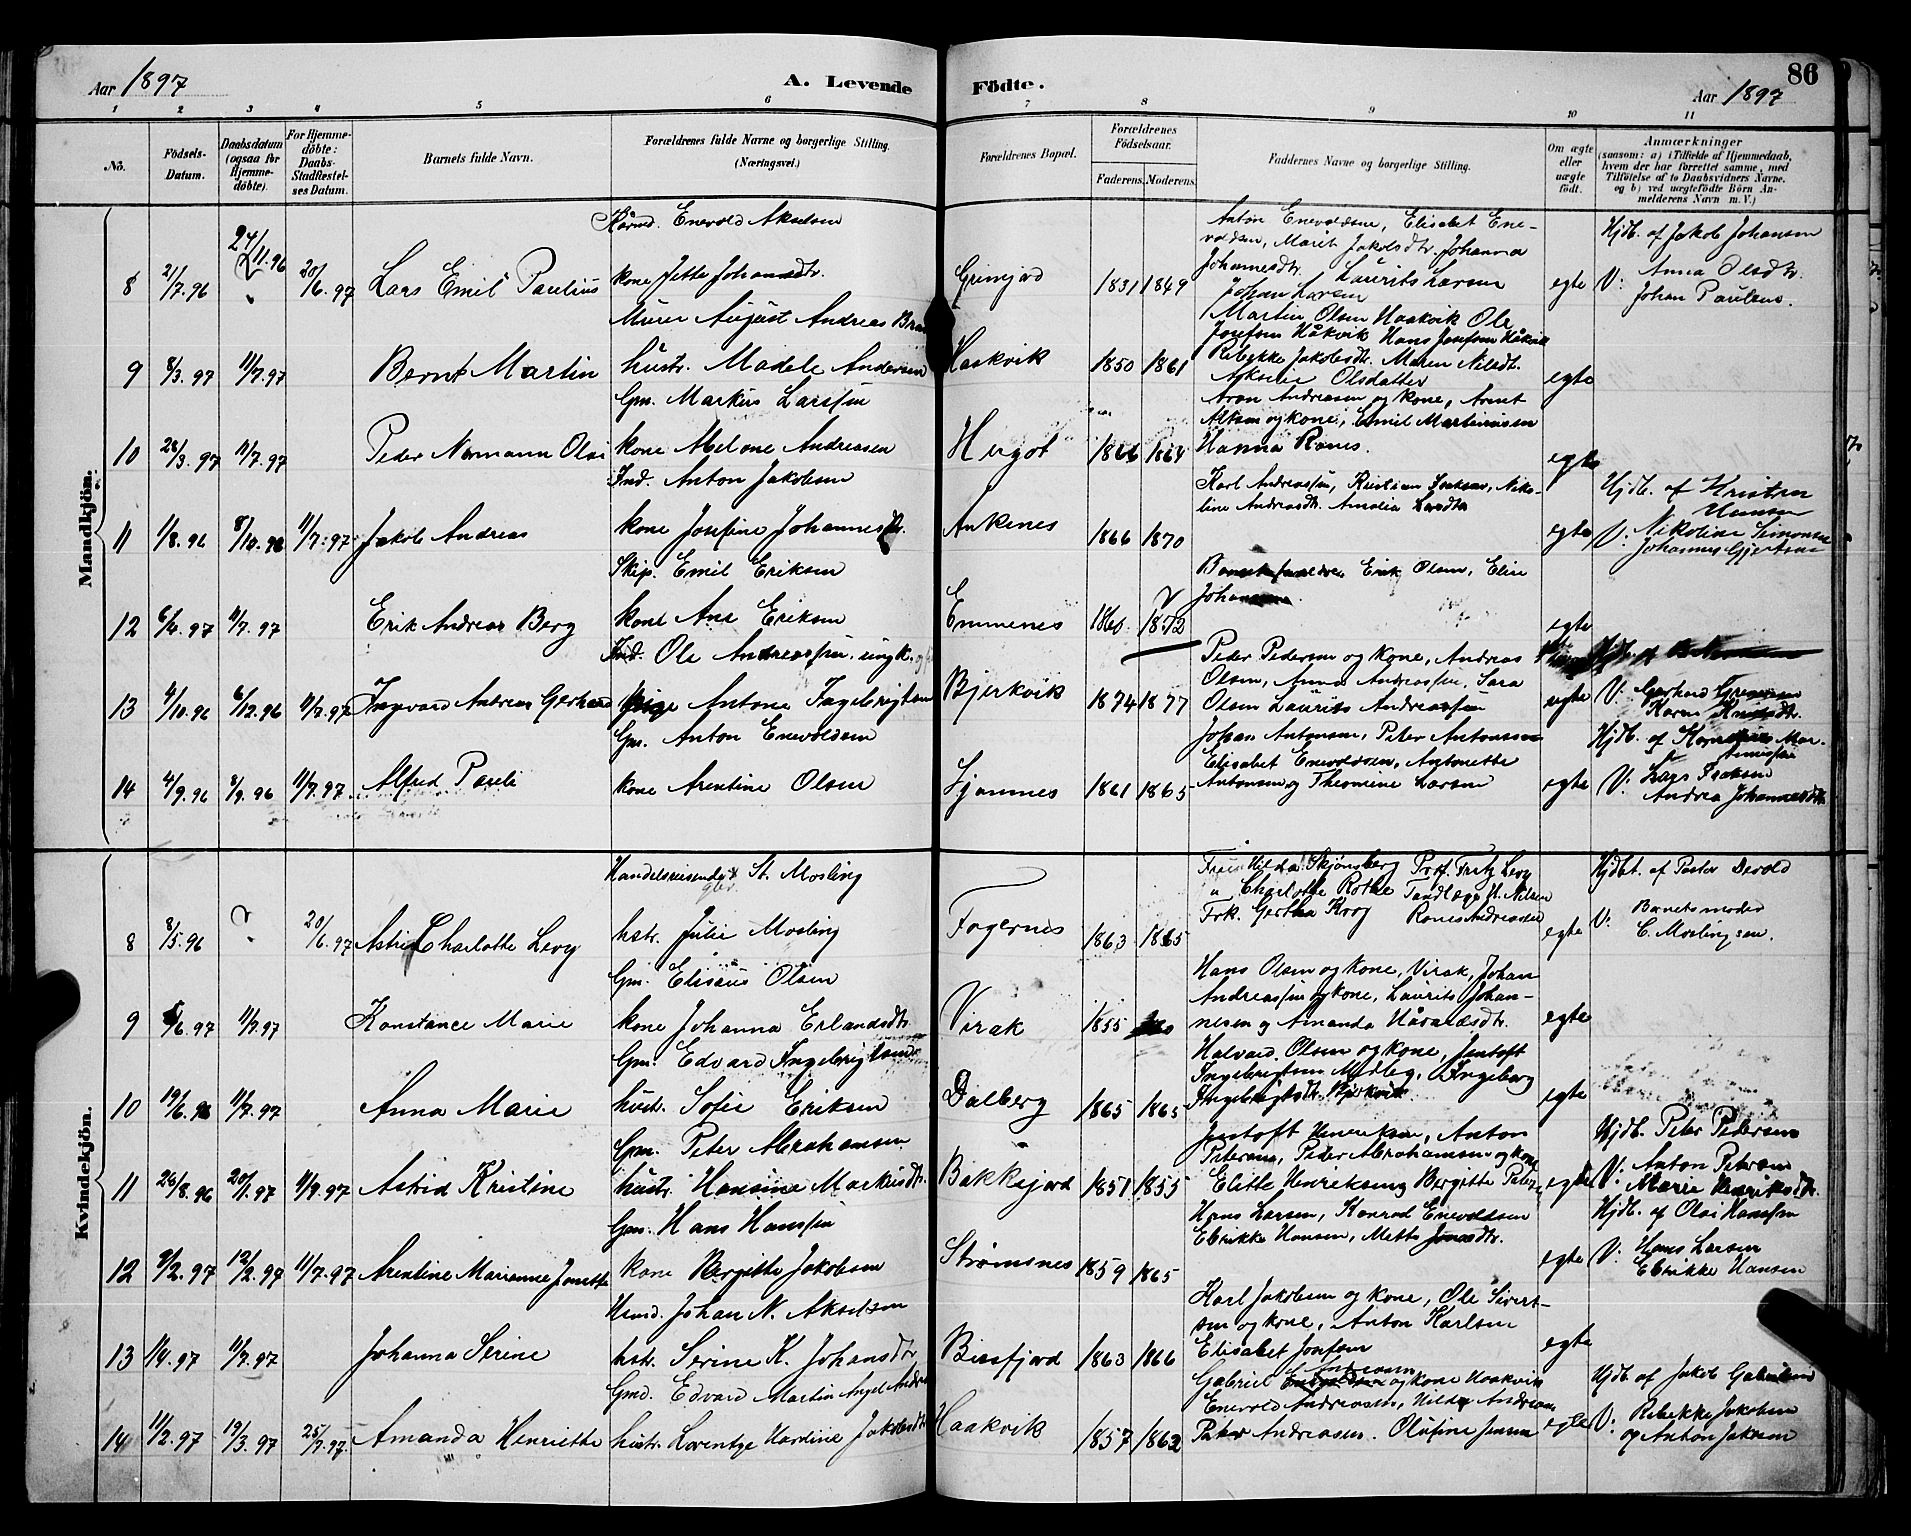 Aar 1897
A. Levende
Födte.
86
Aar 1897
1 2 3 4 5 6 7 8 9 10 11
No.
Födsels-Datum.
Daabsdatum (ogsaa for Hjemme-döbte).
For Hjemme-döbte: Daabs-Stadfæstel-ses Datum.
Barnets fulde Navn.
Forældrenes fulde Navne og borgerlige Stilling.
(Næringsvei.)
Forældrenes Bopæl.
Forældrenes Födselsaar.
Faderens. Moderens.
Faddernes Navne og borgerlige Stilling.
Om ægte eller uægte födt.
Anmærkninger
(saasom: a) i Tilfælde af Hjemmedaab, hvem der har forrettet samme, med Tilföielse af to Daabsvidners Navne. og b) ved uægtefödte Börn An-melderens Navn m. V.)
Mandkjön.
8 21/7.96 24/11.96 20/6.97 Lars Emil Paulius
Enevold Akselsen
kone Jette Johansdtr.
1831 1849
Anton Enevoldsen, Elisabet Ene-
voldsen, Maret Jakobsdtr. Johanna
Johannesdtr. Laurits Larsen
Johan Larsen
egte
Hjdb. af Jakob Johansen
V: Anna Olsdtr.
Johan Paulsen.
9 8/3.97 11/7.97 Bernt Martin
Murer August Andreas
hustr. Madele Andersen
Haakvik 1850 1861
Martin Olsen Haakvik Ole
Josefsen Håkvik Hans Josefsen Håkvik
Rebekke Jakobsdtr. Maren Nilsdt.
Olsdatter
egte
10 28/3.97 11/7.97 Peder Normann Olai
Gm. Markus Larssen
kone Melone Andreasen
Hergot 1866 1864
Aron Andreasen og kone, Arnt
og kone, Emil Martinussen
Hanna Rones.
egte
11 1/8.96 8/10.96 11/7.97 Jakob Andreas
Ind. Anton Jakobsen
kone Josefine Johannesdtr.
Ankenes 1866 1870
Karl Andreassen, Kristian Isaksen, Niko-
line Andreasdtr. Amalia Larsdtr
egte
Hjdb. af Kristen
Hansen
V: Nikoline Simonsen
Johannes Gjertsen
12 6/4.97 11/7.97 Erik Andreas Berg
Skip. Emil Eriksen
kone Ane Eriksen
Emmenes 1860 1872
Erik Olsen, Elen
egte
13 4/10.96 6/12.96 11/7.97 Ingvard Andreas Gerhard
Ind. Ole Andreassen. ungk.
Pige Antone Ingebrigtsen
Bjerkvik 1874 1877
Peder Pedersen og kone, Andreas
Olsen, Anna Andreassen, Sara
Olsen Laurits Andreassen
uegte
V: Gerhard
Karen
14 4/9.96 8/9.96 11/7.97 Alfred Pareli
Gm. Anton Enevoldsen
kone Arentine Olsen
Ljannes 1861 1865
Johan Antonsen, Peter Antonsen
Elisabet Enevoldsen, Antonette
Antonsen og Theomine Larsen
egte
Hjdb. af
V: Lars Isaksen
Andrea Johannesdtr
Kvindekjön.
8 8/5.96 ? 20/6.97 Astrid Charlotte Levy
Handelsreisende St. Mosling
hstr. Julie Mosling
Fagernes 1863 1865
Frue Hilda Skjönsberg Prof. Fritz Levy
" Charlotte Rothe Tandlæge H. Nilsen
Frk. Gertha Krog
egte
Hjdbt. af Pastor Devold
V: Barnets moder
C. Moslingsen.
9 5/6.97 11/7.97 Konstance Marie
Gm. Elisæus Olsen
kone Johanna Erlandsdtr
Virak 1855
Hans Olsen og kone, Virak, Johan
Andreassen og kone, Laurits Johan-
nesen og Amanda Håraldsdtr.
egte
10 19/6.96 11/7.97 Anna Marie
Gm. Edvard Ingebrigtsen
hustr. Sofie Eriksen
Dalberg 1865 1865
Halvard Olsen og kone, Jentoft
Ingebrigtsen Medby, Ingeborg
Ingebrigtsdtr. Bjerkvik
egte
11 26/8.96 20/1.97 11/7.97 Astrid Kristine
Gm. Peter Abrahamsen
hustr. Hansine Markusdtr.
Bakkejord 1851 1855
Jentoft Henriksen, Anton
Petersen, Peder Abrahamsen og kone
Elitte Henriksen og Bergitte Peter
egte
Hjdb. Peter Pedersen
V: Anton Petersen
Marie Henriksdtr.
12 9/2.97 12/2.97 11/7.97 Arentine Marianne Janette
Gm. Hans Hanssen
kone Bergitte Jakobsen
Strömsnes 1859 1865
Hans Larsen, Konrad Enevoldsen
Elirikke Hansen, Mette Jonasdtr.
egte
Hjdb. af Olai Hanssen
V: Hans Larsen
Elirikke Hansen
13 1/4.97 11/7.97 Johanna Serine
Hmd. Johan N. Akselsen
hstr. Serine K. Johansdtr
Beisfjord 1863 1866
Karl Jakobsen og kone, Ole Sivert-
sen og kone, Anton Karlsen
Elisabet Josefsen
egte
14 11/2.97 19/3.97 25/7.97 Amanda Henriette
Gmd. Edvard Martin Angel
hustr. Lorentze Hardine Jakobsdtr
Haakvik 1857 1862
Gabriel Andreasen og kone Haakvik
Enevold Andreasen, Hilda Andreasen
Peter Andreasen. Olufine Jensen
egte
Hjdb. af Jakob Gabrielsen
V: Rebekke Jakobsen
og Anton Jakobsen